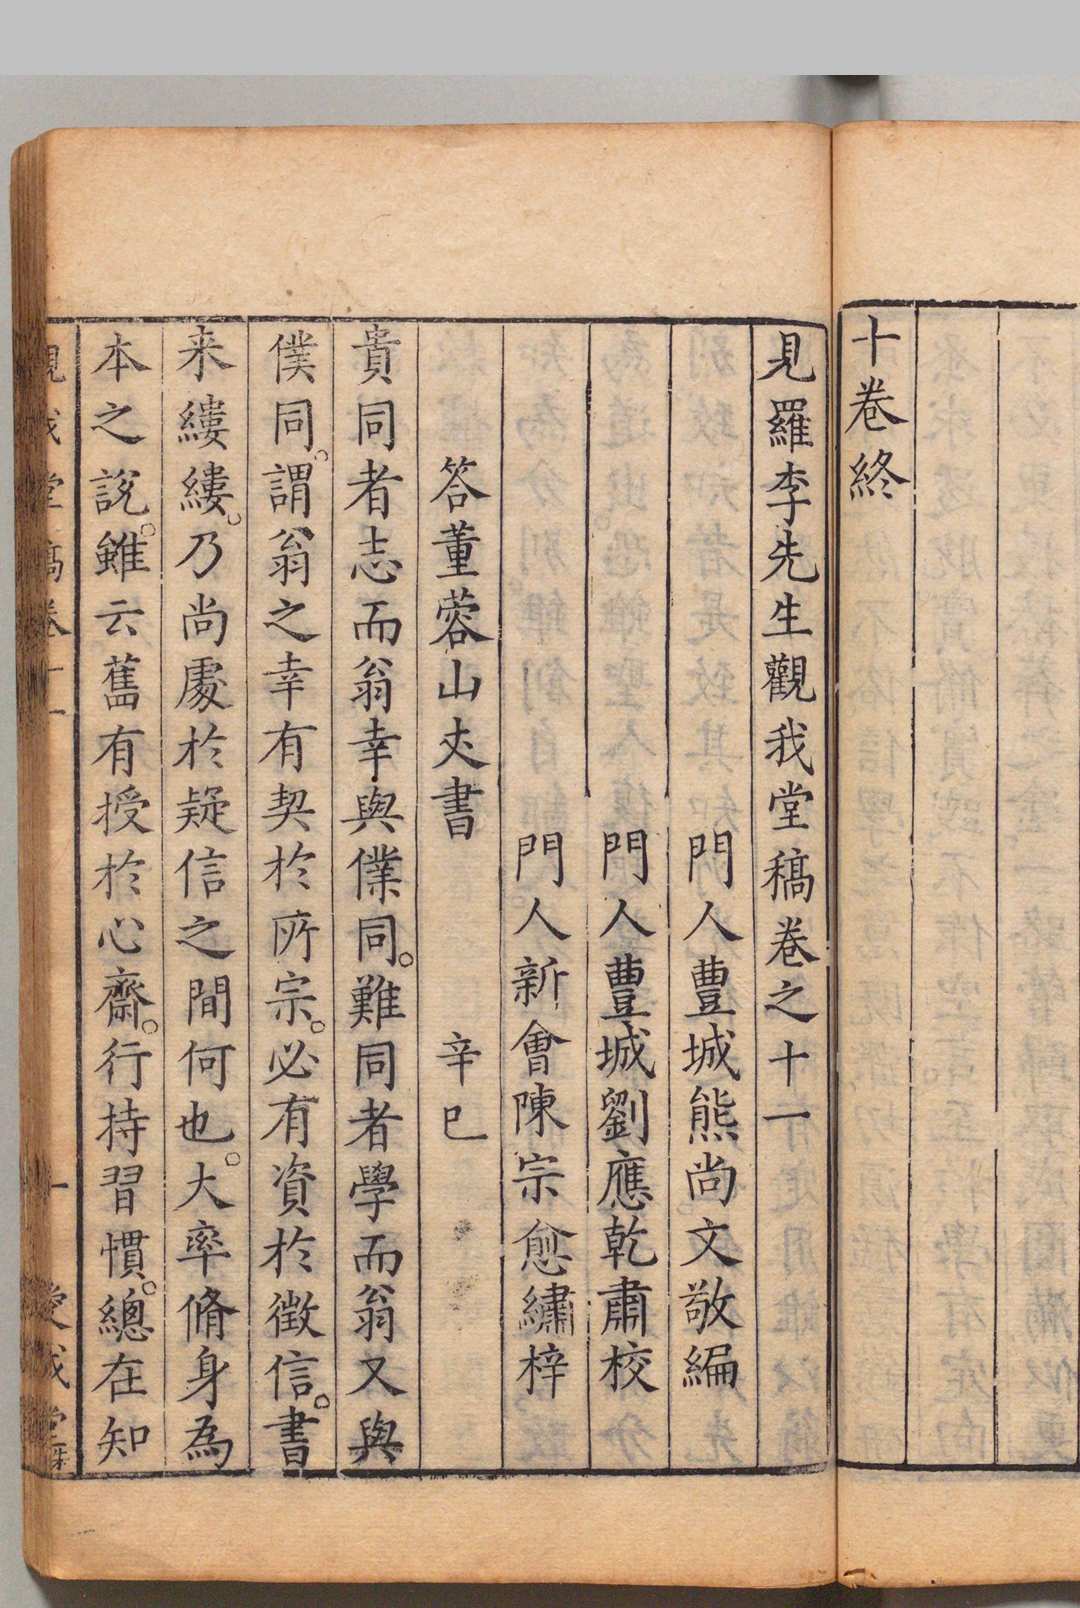 十卷終
見羅李先生觀我堂稿卷之十一
門人豐城熊尚文敬編
門人豐城劉應乾肅校
門人新會陳宗愈繡梓
答董蓉山丈書 辛巳
貴同者志而翁幸與僕同。難同者學而翁又與
僕同。謂翁之幸有契於所宗。必有資於徵信。書
来縷縷。乃尚處於疑信之間何也。大率脩身為
本之說。雖云舊有授於心齋。行持習慣。總在知
觀我堂稿卷十一 一 愛成堂梓